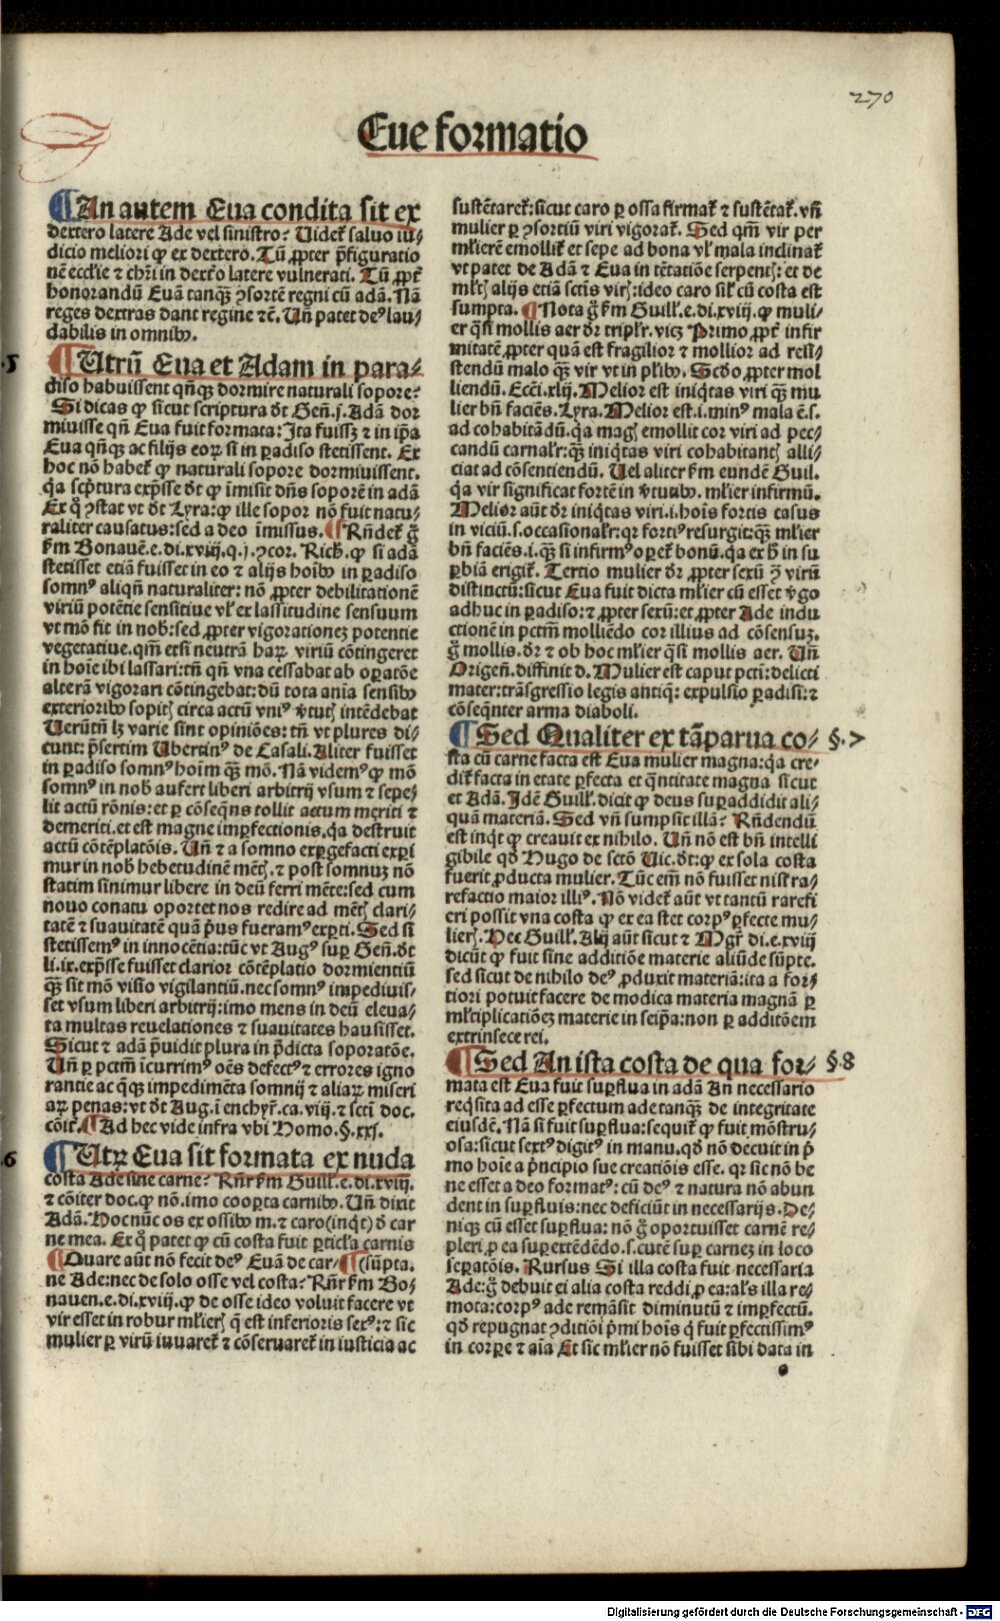 270
Eue formatio
¶ An autem Eua condita sit ex
dextero latere Ade vel sinistro? Videt̃ saluo iu⸗
dicio meliori ꝙ ex dextero. Tũ ꝓpter p̃figuratio
nẽ ecclie ⁊ chr̃i in dext̃o latere vulnerati. Tũ ꝓpt̃
honorandũ Euã tanqꝫ ꝯsortẽ regni cũ adã. Nã
reges dextras dant regine ⁊c̃. Vñ patet deꝰ lau⸗
dabilis in omnibꝰ.
.5
¶ Utrũ Eua et Adam in para⸗
diso habuissent qñqꝫ dormire naturali sopore?
Si dicas ꝙ sicut scriptura d̃t Geñ.j. Adã dor
miuisse qñ Eua fuit formata: Ita fuissꝫ ⁊ in ip̃a
Eua qñqꝫ ac filijs eoꝝ si in ꝑadiso stetissent. Ex
hoc nõ habet̃ ꝙ naturali sopore dormiuissent.
q̃a scp̃tura exp̃sse d̃t ꝙ ĩmisit dñs soporẽ in adã
Ex q̊ ꝯstat vt d̃t Lyra: ꝙ ille sopor nõ fuit natu⸗
raliter causatus: sed a deo ĩmissus. ¶ Rñdet̃ g̃
ẽm Bonauẽ.e.di.xviij.q.j.ꝯcor. Rich. ꝙ si adã
stetisset etiã fuisset in eo ⁊ alijs hoĩbꝰ in ꝑadiso
somnꝰ aliqñ naturaliter: nõ ꝓpter debilitationẽ
viriũ potẽtie sensitiue vl̃ ex lassitudine sensuum
vt mõ fit in nob̃: sed ꝓpter vigorationeꝫ potentie
vegetatiue. qm̃ etsi neutrã haꝝ viriũ cõtingeret
in hoĩe ibi lassari: tñ qñ vna cessabat ab oꝑatõe
alterã vigorari cõtingebat: dũ tota aĩa sensibꝰ
exterioribꝰ sopitꝭ circa actũ vniꝰ ṽtutꝭ intẽdebat
Verũtñ lꝫ varie sint opiniões: tñ vt plures di⸗
cunt: p̃sertim Ubertinꝰ de Casali. Aliter fuisset
in ꝑadiso somnꝰ hoĩm qꝫ mõ. Nã videmꝰ ꝙ mõ
somnꝰ in nob̃ aufert liberi arbitrij vsum ⁊ sepe⸗
lit actũ rõnis: et ꝑ cõseq̃ns tollit actum meriti ⁊
demeriti. et est magne imꝑfectionis. q̃a destruit
actũ cõtẽplatõis. Vñ ⁊ a somno exꝑgefacti exꝑi
mur in nob̃ hebetudinẽ mẽtꝭ. ⁊ post somnuꝫ nõ
statim sinimur libere in deũ ferri mẽte: sed cum
nouo conatu oportet nos redire ad mẽtꝭ clari⸗
tatẽ ⁊ suauitatẽ quã p̃us fueramꝰ exꝑti. Sed si
stetissemꝰ in innocẽtia: tũc vt Augꝰ suꝑ Geñ. d̃t
li.ix. exp̃sse fuisset clarior cõtẽplatio dormientiũ
qꝫ sit mõ visio vigilantiũ. nec somnꝰ impediuis⸗
set vsum liberi arbitrij: imo mens in deũ eleua⸗
ta multas reuelationes ⁊ suauitates hausisset.
Sicut ⁊ adã p̃uidit plura in p̃dicta soporatõe.
Vñ ꝑ pctm̃ ĩcurrimꝰ oẽs defectꝰ ⁊ errores igno
rantie ac q̃qꝫ impedimẽta somnij ⁊ aliaꝝ miseri
aꝝ penas: vt d̃t Aug. ĩ enchyr̃.ca.viij.⁊ sctĩ doc.
cõit̃. ¶ Ad hec vide infra vbi Homo.§.xxj.
.6
¶ Utꝝ Eua sit formata ex nuda
costa Ade sine carne? Rñr ẽm Guill̃.e.di.xviij.
⁊ cõiter doc. ꝙ nõ. imo cooꝑta carnibꝰ. Vñ dixit
Adã. Hoc nũc os ex ossibꝰ m.⁊ caro(inq̃t) d̃ car
ne mea. Ex q̊ patet ꝙ cũ costa fuit ꝑticl̃a carnis
¶ Quare aũt nõ fecit deꝰ Euã de car⸗ ¶ (sũpta.
ne Ade: nec de solo osse vel costa? Rñr ẽm Bo⸗
nauen.e.di.xviij. ꝙ de osse ideo voluit facere vt
vir esset in robur ml̃ierꝭ q̃ est inferioris sexꝰ: ⁊ sic
mulier ꝑ virũ iuuaret̃ ⁊ cõseruaret̃ in iusticia ac
sustẽtaret̃: sicut caro ꝑ ossa firmat̃ ⁊ sustẽtat̃. vñ
mulier ꝑ ꝯsortiũ viri vigorat̃. Sed qm̃ vir per
ml̃ierẽ emollit̃ et sepe ad bona vl̃ mala inclinat̃
vt patet de Adã ⁊ Eua in tẽtatiõe serpentꝭ: et de
ml̃tꝭ alijs etiã sctĩs virꝭ: ideo caro sil̃ cũ costa est
sumpta. ¶ Nota g̃ ẽm Guill̃.e.di.xviij. ꝙ muli⸗
er q̃si mollis aer dr̃ tripl̃r. vicꝫ Primo ꝓpt̃ infir
mitatẽ ꝓpter quã est fragilior ⁊ mollior ad resi⸗
stendũ malo qꝫ vir vt in pl̃ibꝰ. Scd̃o ꝓpter mol
liendũ. Eccĩ.xlij. Melior est iniq̃tas viri qꝫ mu
lier bñ faciẽs. Lyra. Melior est.i. minꝰ mala ẽ.s.
ad cohabitãdũ. q̃a magꝭ emollit cor viri ad pec⸗
candũ carnal̃r: qꝫ iniq̃tas viri cohabitantꝭ alli⸗
ciat ad cõsentiendũ. Vel aliter ẽm eundẽ Guil.
q̃a vir significat fortẽ in ṽtutibꝰ. ml̃ier infirmũ.
Melior aũt dr̃ iniq̃tas viri.i. hoĩs fortis casus
in viciũ.s. occasional̃r: qr fortiꝰ resurgit: qꝫ ml̃ier
bñ faciẽs.i. qꝫ si infirmꝰ oꝑet̃ bonũ. q̃a ex h̃ in su
ꝑbiã erigit̃. Tertio mulier dr̃ ꝓpter sexũ ꝯ̃ virũ
distinctũ: sicut Eua fuit dicta ml̃ier cũ esset v̊go
adhuc in ꝑadiso: ⁊ ꝓpter sexũ: et ꝓpter Ade indu
ctionẽ in pctm̃ molliẽdo cor illius ad cõsensuꝫ.
g̃ mollis. dr̃ ⁊ ob hoc ml̃ier q̃si mollis aer. Vñ
Origeñ. diffinit d. Mulier est caput pctĩ: delicti
mater: trãsgressio legis antiq̃: expulsio ꝑadisi: ⁊
cõseq̃nter arma diaboli.
¶ Sed Qualiter ex tã parua co⸗ §.7
sta cũ carne facta est Eua mulier magna: q̃a cre⸗
dit̃ facta in etate ꝑfecta et q̃ntitate magna sicut
et Adã. Idẽ Guill̃. dicit ꝙ deus suꝑaddidit ali⸗
quã materiã. Sed vñ sumpsit illã? Rñdendũ
est inq̃t ꝙ creauit ex nihilo. Vñ nõ est bñ intelli
gibile qd̃ Hugo de sctõ Vic. d̃t: ꝙ ex sola costa
fuerit ꝓducta mulier. Tũc em̃ nõ fuisset nisi ra⸗
refactio maior illiꝰ. Nõ videt̃ aũt vt tantũ rarefi
eri possit vna costa ꝙ ex ea stet corpꝰ ꝑfecte mu⸗
lierꝭ. Hec Guill̃. Alij aũt sicut ⁊ Mgr̃ di.e.xviij
dicũt ꝙ fuit sine additiõe materie aliũde sũpte.
sed sicut de nihilo deꝰ ꝓduxit materiã: ita a for⸗
tiori potuit facere de modica materia magnã ꝑ
ml̃tiplicatiõeꝫ materie in seip̃a: non ꝑ additõem
extrinsece rei.
¶ Sed An ista costa de qua for⸗ §.8
mata est Eua fuit suꝑflua in adã An necessario
req̃sita ad esse ꝑfectum ade tanqꝫ de integritate
eiusdẽ. Nã si fuit suꝑflua: sequit̃ ꝙ fuit mõstru⸗
osa: sicut sextꝰ digitꝰ in manu. qd̃ nõ decuit in p̃
mo hoĩe a p̃ncipio sue creatiõis esse. qr sic nõ be
ne esset a deo formatꝰ: cũ deꝰ ⁊ natura nõ abun
dent in suꝑfluis: nec deficiũt in necessarijs. De⸗
niqꝫ cũ esset suꝑflua: nõ g̃ oportuisset carnẽ re⸗
pleri ꝓ ea suꝑextẽdẽdo.s. cutẽ suꝑ carneꝫ in loco
seꝑatõis. Rursus Si illa costa fuit necessaria
Ade: g̃ debuit ei alia costa reddi ꝓ ea: al̃s illa re⸗
mota: corpꝰ ade remãsit diminutũ ⁊ imꝑfectũ.
qd̃ repugnat ꝯditiõi p̃mi hoĩs q̃ fuit ꝑfectissimꝰ
in corꝑe ⁊ aĩa Et sic ml̃ier nõ fuisset sibi data in
Digitalisierung gefördert durch die Deutsche Forschungsgemeinschaft - DFG